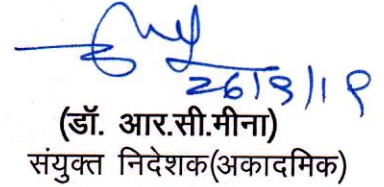 26/9/19
(डॉ. आर.सी.मीना)
संयुक्त निदेशक(अकादमिक)